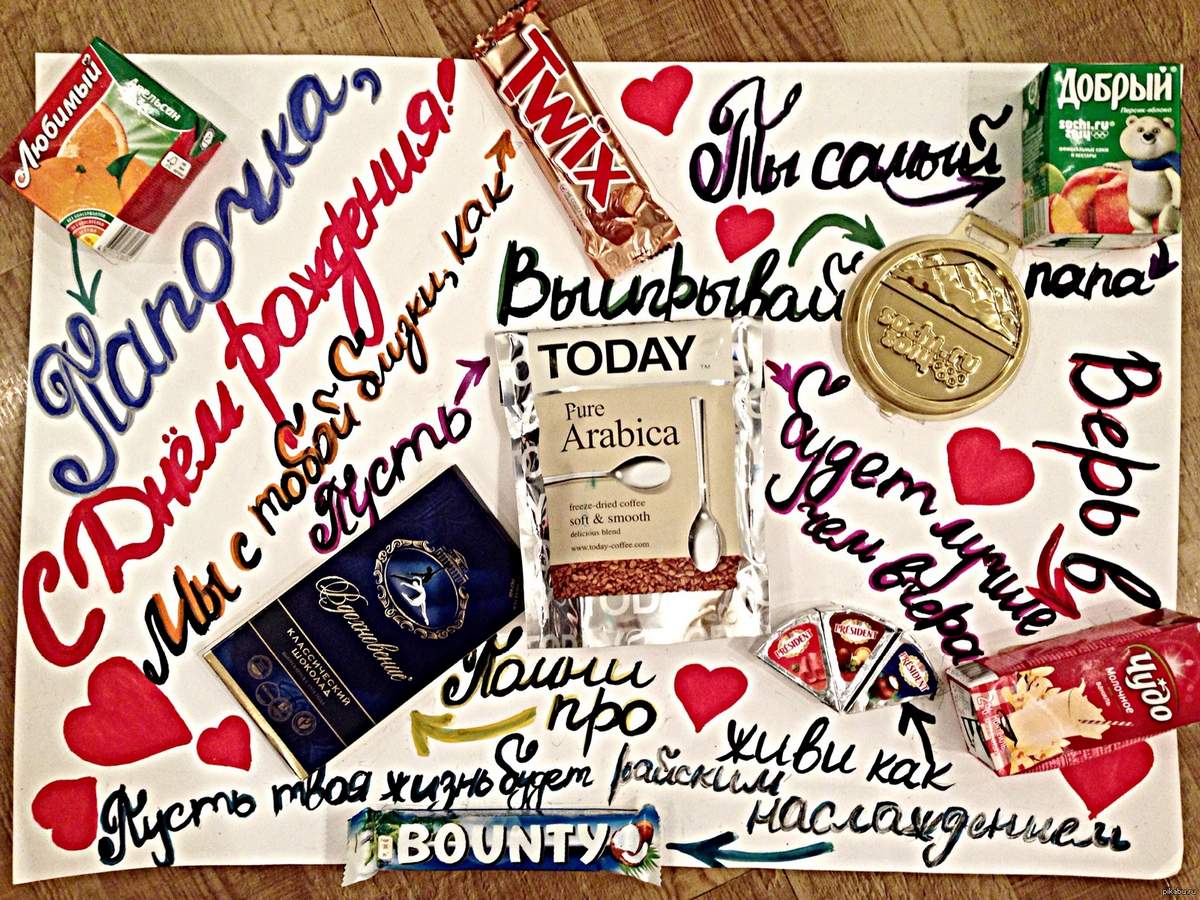 Любимый
Апельсин
Папочка,
С Днём рождения!
Мы с тобой близки, как
Twix
Ты самый
Добрый
Персик-яблоко
sochi.ru
2014
официальные соки
и нектары
папа
Выигрывай
sochi.ru
2014
Пусть
TODAY
TM
Pure
Arabica
freeze-dried coffee
soft & smooth
delicious blend
www.today-coffee.com
TODAY
будет лучше
чем вчера
Верь в
Чудо
Молочное
Помни
про
Вдохновение
КЛАССИЧЕСКИЙ
ШОКОЛАД
живи как
PRÉSIDENT
PRÉSIDENT
PRÉSIDENT
Пусть твоя жизнь будет райским
наслаждением
BOUNTY
pikabu.ru